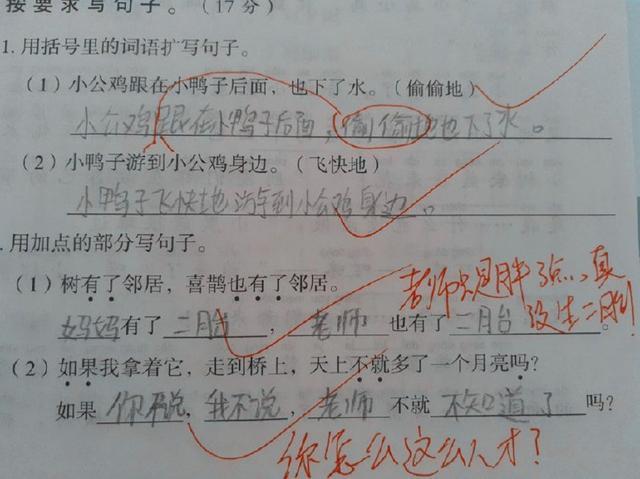 按要求写句子。（17分）
1. 用括号里的词语扩写句子。
（1）小公鸡跟在小鸭子后面，也下了水。（偷偷地）
小公鸡跟在小鸭子后面，偷偷地也下了水。
（2）小鸭子游到小公鸡身边。（飞快地）
小鸭子飞快地游到小公鸡身边。
. 用加点的部分写句子。
（1）树有了邻居，喜鹊也有了邻居。
老师只是胖了点，真没生二胎！
妈妈有了二月台，老师也有了二月台。
（2）如果我拿着它，走到桥上，天上不就多了一个月亮吗？
如果你不说，我不说，老师不就不知道了吗？
你怎么这么人才？